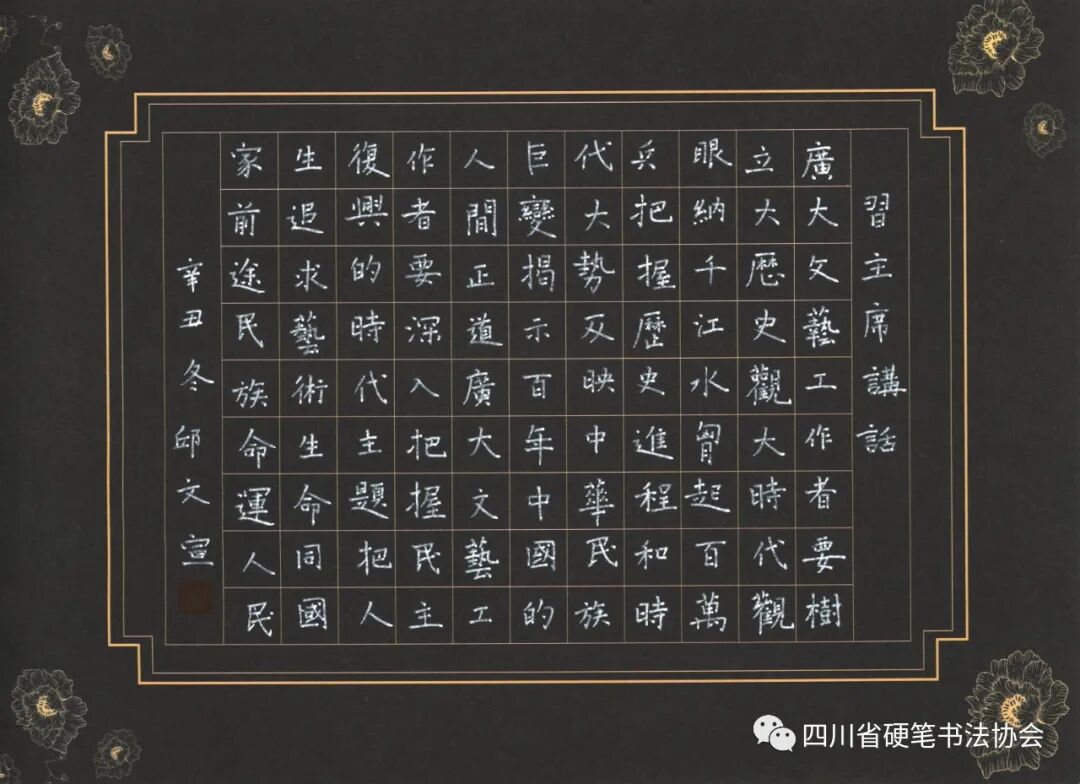 習主席講話
廣大文藝工作者要樹
立大厯史觀大時代觀
眼納千江水胷起百萬
兵把握歷史進程和時
代大勢反映中華民族
巨變揭示百年中國的
人間正道廣大文藝工
作者要深入把握民主
復興的時代主題把人
生追求藝術生命同國
家前途民族命運人民
辛丑冬邱文宣
四川省硬笔书法协会